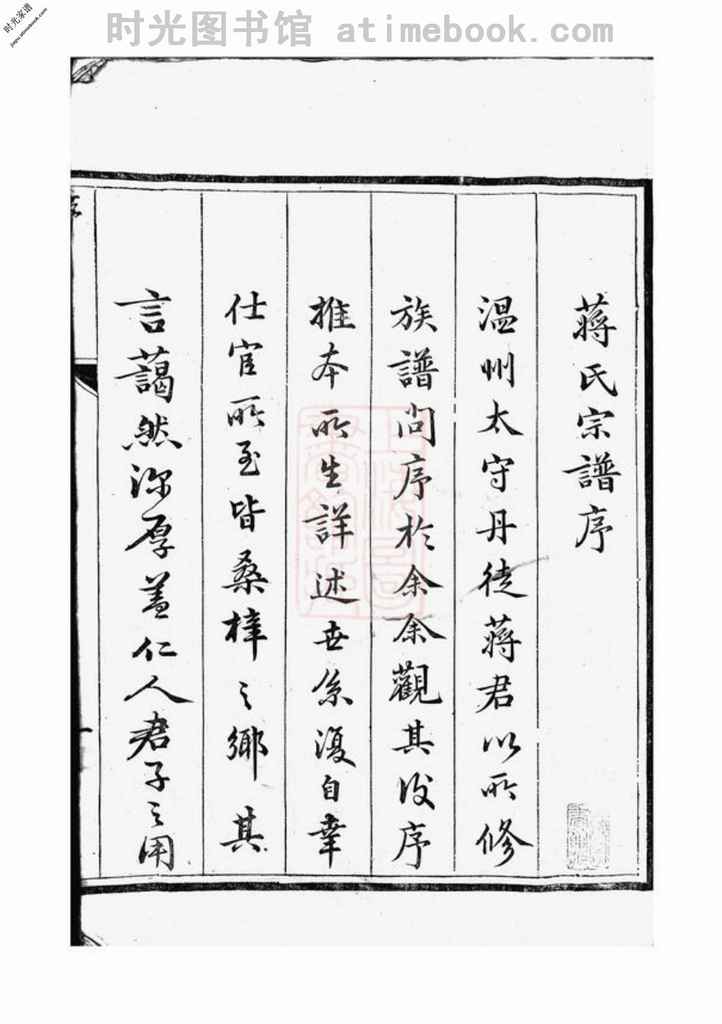 时光图书馆 atimebook.com
时光家谱
jiapu.atimebook.com
蔣氏宗譜序
温州太守丹徒蔣君以所修
族譜問序於余余觀其後序
推本所生詳述世系復自幸
仕宦所至皆桑梓之鄉其
言藹然深厚蓋仁人君子之用
序
一